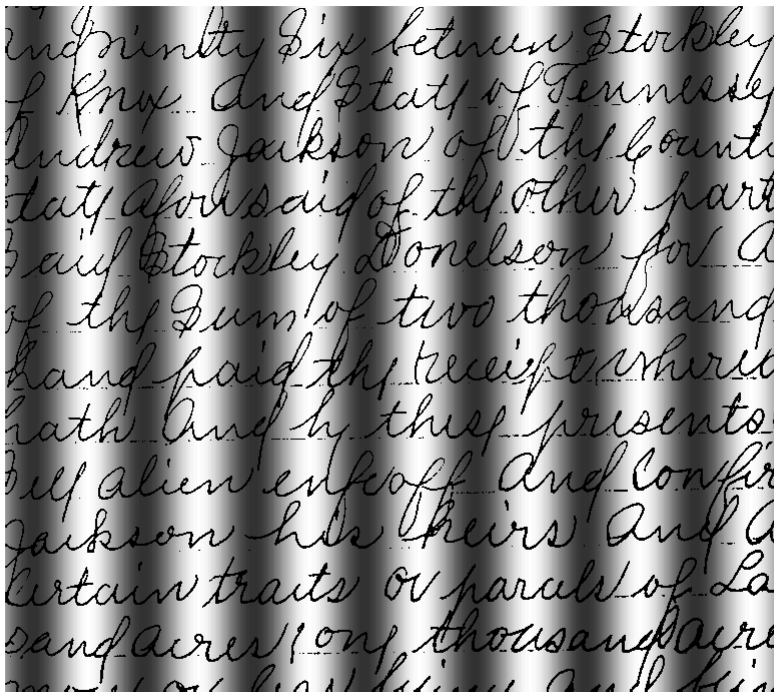 and ninety Six between Stockley
of Knox and State of Tennessey
Andrew Jackson of the Count
State aforesaid of the other part
Said Stockley Donelson for a
of the Sum of two thousand
hand paid the receipt where
hath and by these presents
Sell alien enfeoff and Confir
Jackson his heirs and a
Certain tracts or parcels of La
sand acres one thousand acre
more or less lying and bein